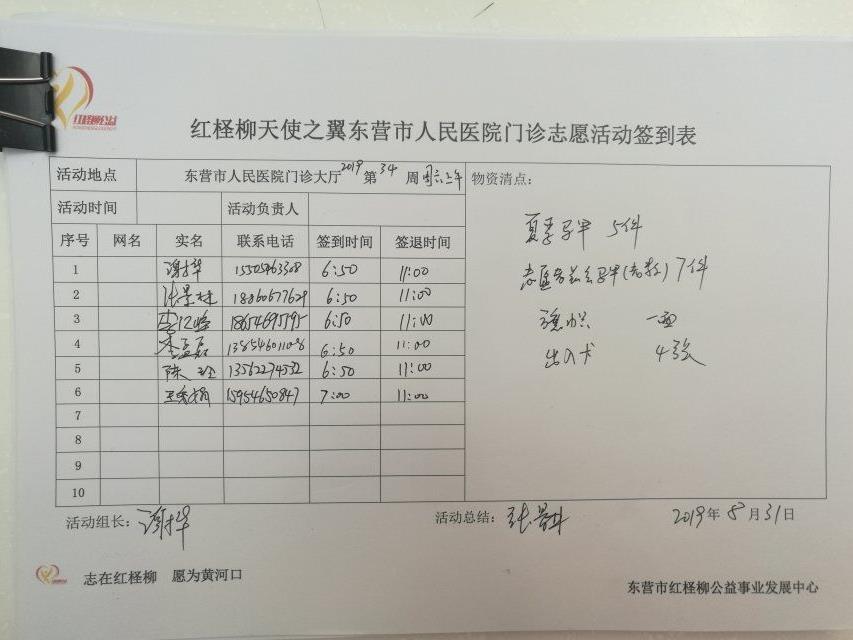 红柽柳公益
红柽柳天使之翼东营市人民医院门诊志愿活动签到表
活动地点 东营市人民医院门诊大厅 2019 第 34 周 周六上午 物资清点:
活动时间 活动负责人
序号 网名 实名 联系电话 签到时间 签退时间
夏季马甲 5件
1 6:50 11:00
7件
2 张景林 18060677629 6:50 11:00
3 18654695795 6:50 11:00
一面
4 李孟磊 13854601108 6:50 11:00
出入卡 4张
5 陈玲 13562274532 6:50 11:00
6 15954650847 7:00 11:00
7
8
9
10
活动组长: 活动总结: 张景林 2019年8月31日
志在红柽柳 愿为黄河口
东营市红柽柳公益事业发展中心